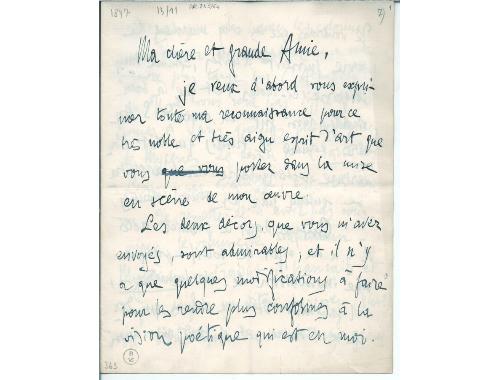 1897 13/11 7)
Ma chère et grande Amie,
je veux d'abord vous expri-
mer toute ma reconnaissance pour ce
très noble et très aigu esprit d'art que
vous que vous portez dans la mise
en scène de mon œuvre.
Les deux décors, que vous m'avez
envoyés, sont admirables, et il n'y
a que quelques modifications à faire
pour les rendre plus conformes à la
vision poétique qui est en moi.
363